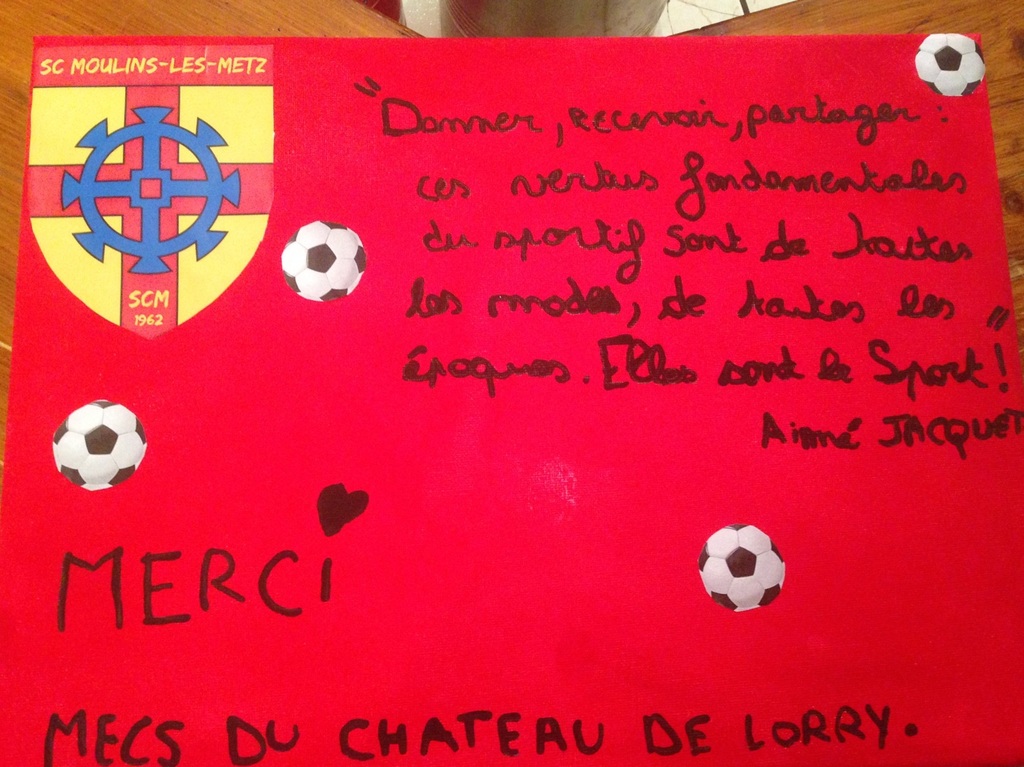 SC MOULINS-LES-METZ
SCM
1962
"Donner, recevoir, partager :
ces vertus fondamentales
du sportif sont de toutes
les modes, de toutes les
époques. Elles sont le Sport! "
Aimé JACQUET
MERCI
MECS DU CHATEAU DE LORRY.